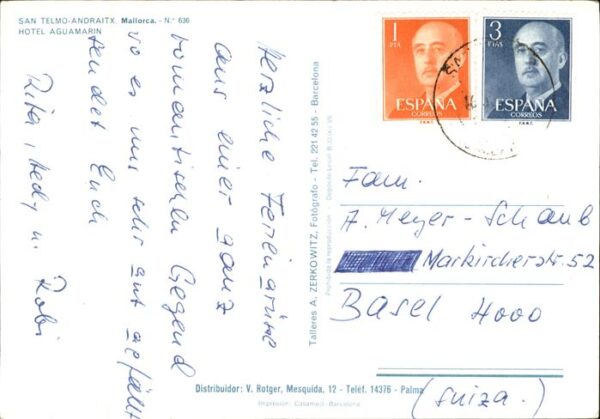 SAN TELMO-ANDRAITX. Mallorca. - N.° 636
HOTEL AGUAMARIN
Herzliche Feriengrüsse
aus einer ganz
romantischen Gegend
wo es uns sehr gut gefällt
sendet Euch
Rita, Hedy u. Robi
Talleres A. ZERKOWITZ, Fotógrafo - Tel. 221 42 55 - Barcelona
Prohibida la reproducción - Depósito Legal B.
1
PTA
ESPAÑA
CORREOS
F.N.M.T.
3
PTAS
ESPAÑA
CORREOS
F.N.M.T.
Fam.
A. Meyer-Schaub
Markircherstr. 52
Basel 4000
(Suiza.)
Distribuidor: V. Rotger, Mesquida, 12 - Teléf. 14376 - Palma
Impresión: Casamajó-Barcelona